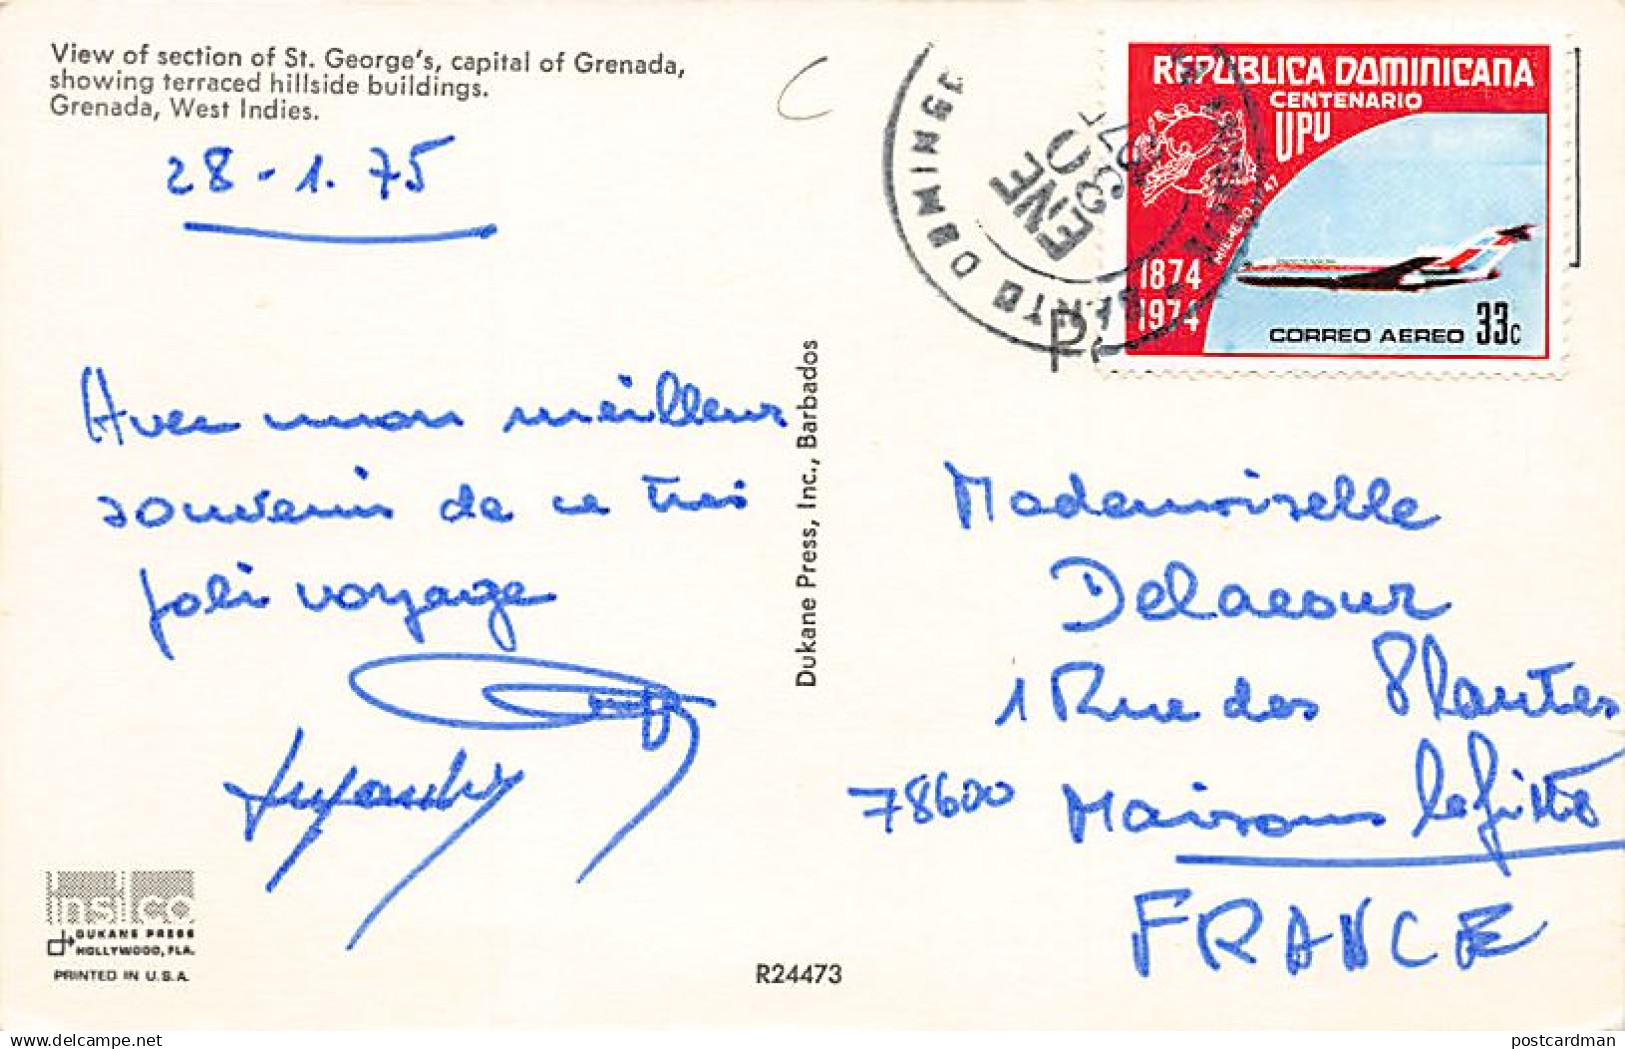 View of section of St. George's, capital of Grenada,
showing terraced hillside buildings.
Grenada, West Indies.
28-1.75
Avec mon meilleur
souvenir de ce très
joli voyage
Dukane Press, Inc., Barbados
REPUBLICA DOMINICANA
CENTENARIO
UPU
1874
1974
CORREO AEREO 33c
ENE
30
Mademoiselle
Delacour
1 Rue des Plantes
78600 Maisons Lafitte
FRANCE
insico
DUKANE PRESS
HOLLYWOOD, FLA.
PRINTED IN U.S.A.
R24473
https://www.delcampe.net
postcardman